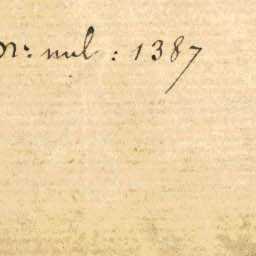 Nr: mil: 1387